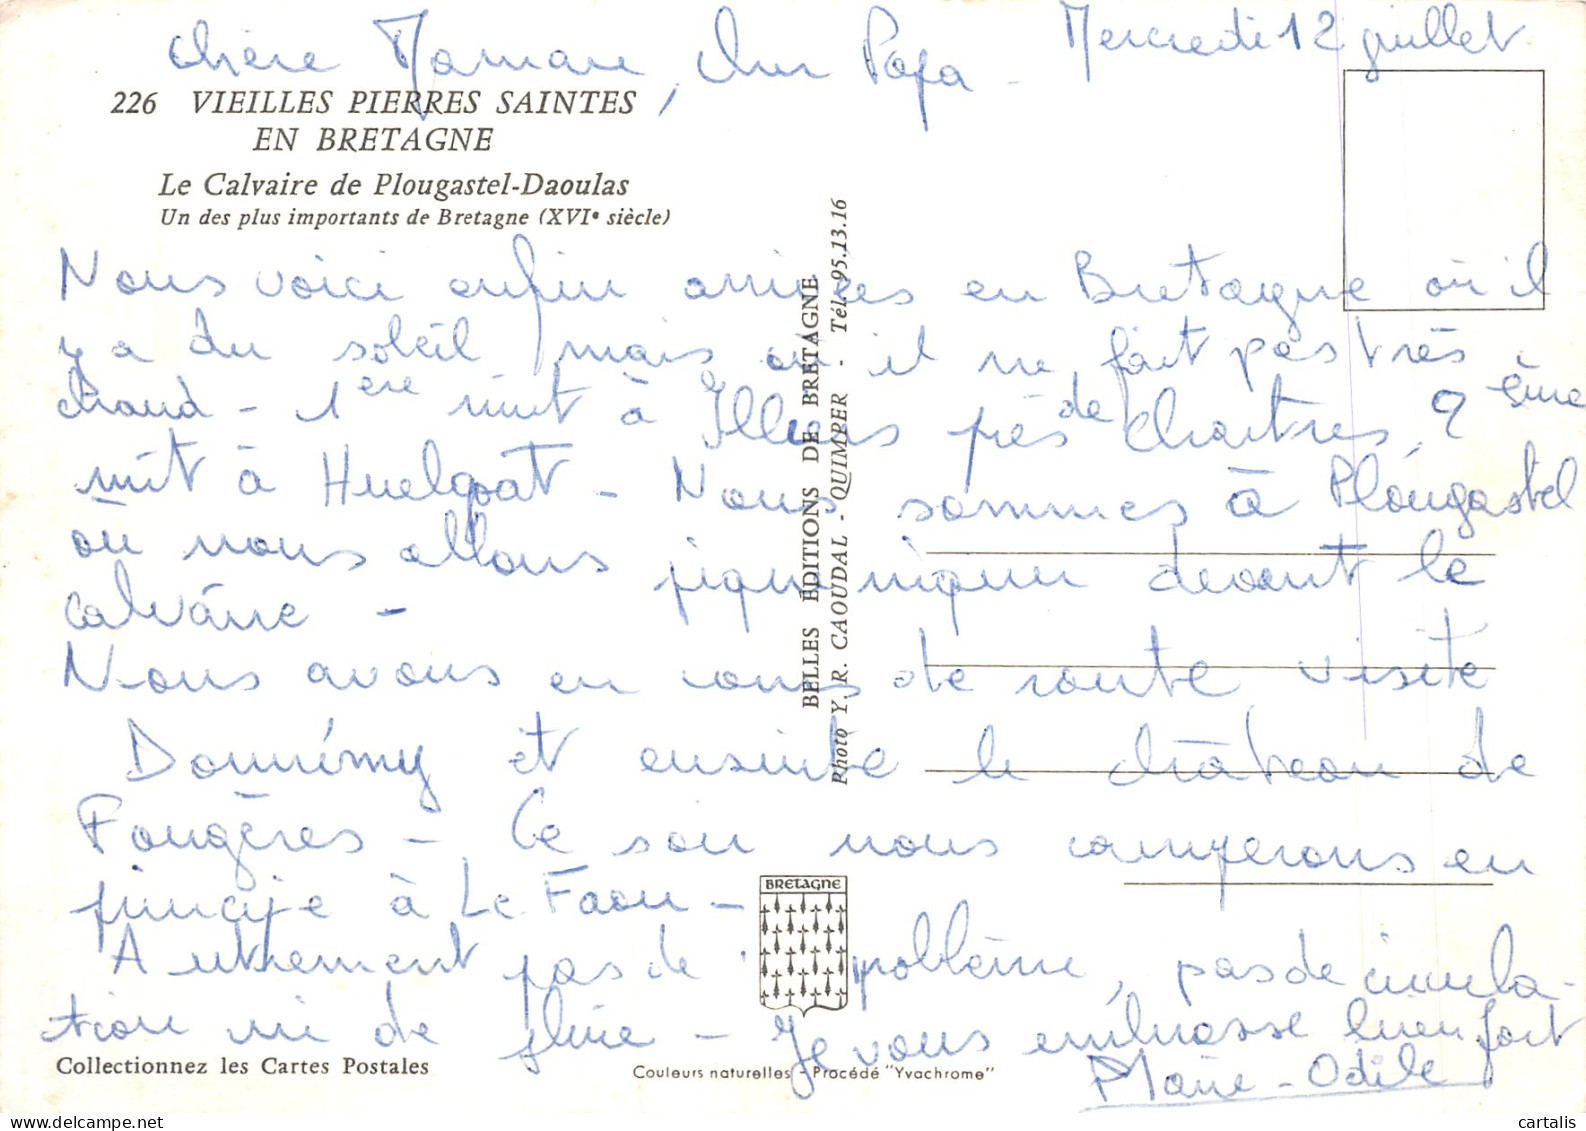 Mercredi 12 juillet
Chère Maman, cher Papa -
226 VIEILLES PIERRES SAINTES
EN BRETAGNE
Le Calvaire de Plougastel-Daoulas
Un des plus importants de Bretagne (XVIe siècle)
Nous voici enfin arrivées en Bretagne où il
y a du soleil mais où il ne fait pas très
chaud - 1ère nuit à Illiers près de Chartres, 2ème
nuit à Huelgoat - Nous sommes à Plougastel
où nous allons pique niquer devant le
calvaire -
Nous avons en cours de route visité
et ensuite le château de
Fougères - Ce soir nous camperons en
principe à Le Faou -
Autrement pas de problème, pas de circula-
tion ni de pluie - Je vous embrasse bien fort
Marie-Odile
BELLES EDITIONS DE BRETAGNE
Photo Y. R. CAOUDAL - QUIMPER - Tél. 95.13.16
BRETAGNE
Collectionnez les Cartes Postales
Couleurs naturelles - Procédé "Yvachrome"
cartalis